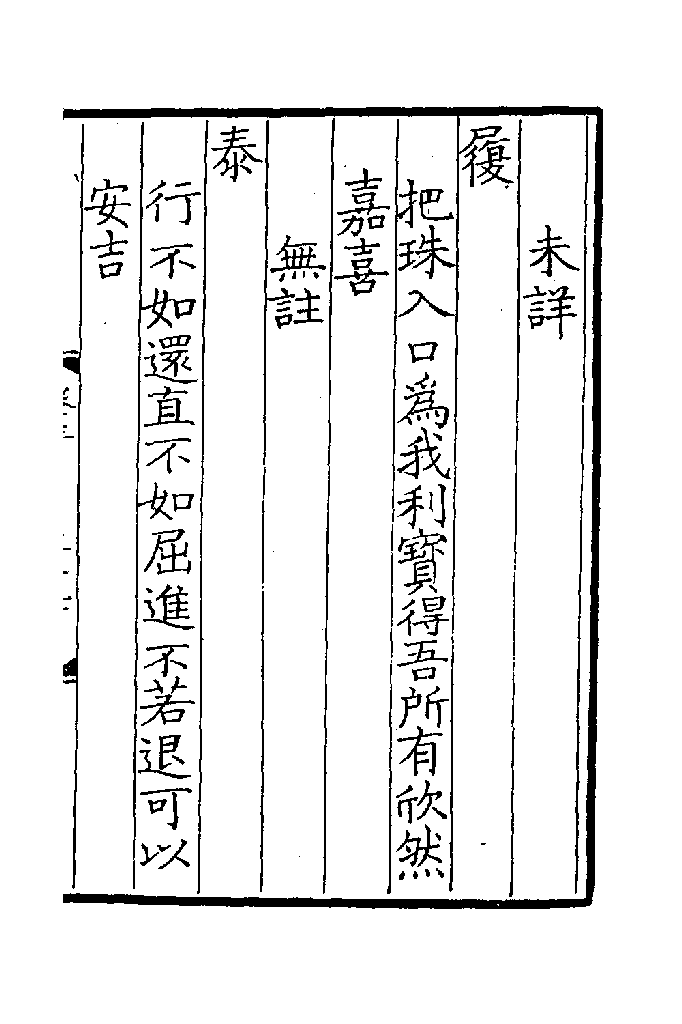 未詳
履
把珠入口為我利寶得吾所有欣然
嘉喜
無註
泰
行不如還直不如屈進不若退可以
安吉